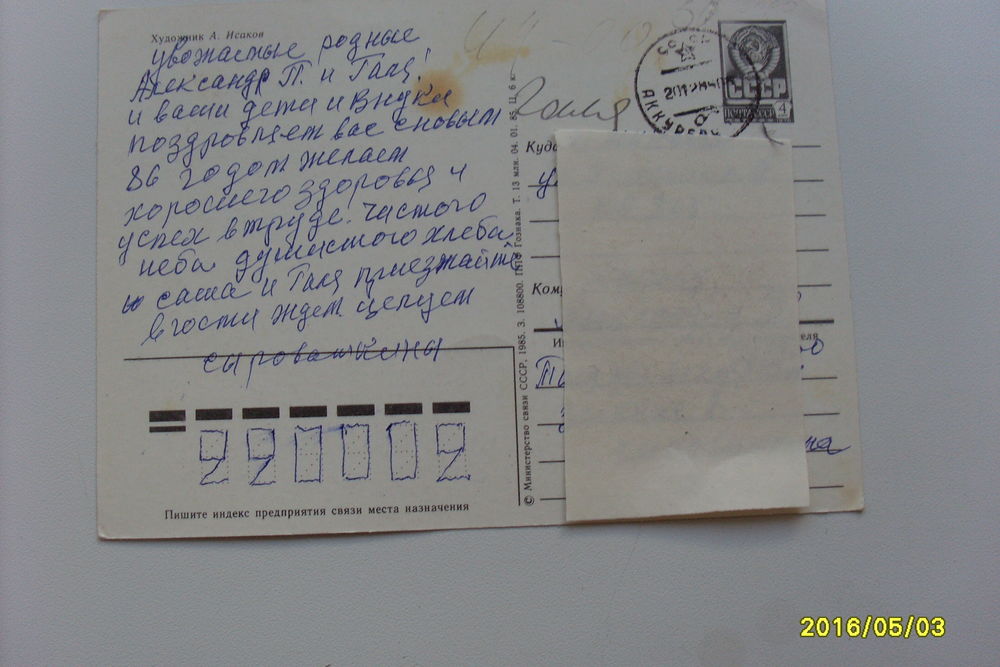 Художник А. Исаков
увожастые родные
Александр П. и Галя!
и ваши дети и внуки
поздровляем вас с новым
86 годом желаем
хорошего здоровья и
успех в труде. частого
неба душистого хлеба
саша и Галя приезжайте
в гости ждем целуем
сыроваткины
220002
Пишите индекс предприятия связи места назначения
© Министерство связи СССР, 1985. З. 108800. ППФ Гознака. Т. 13 млн. 04. 01. 85. Ц. 6 к.
Галя
СССР
ПОЧТА СССР
4
Куда
2016/05/03